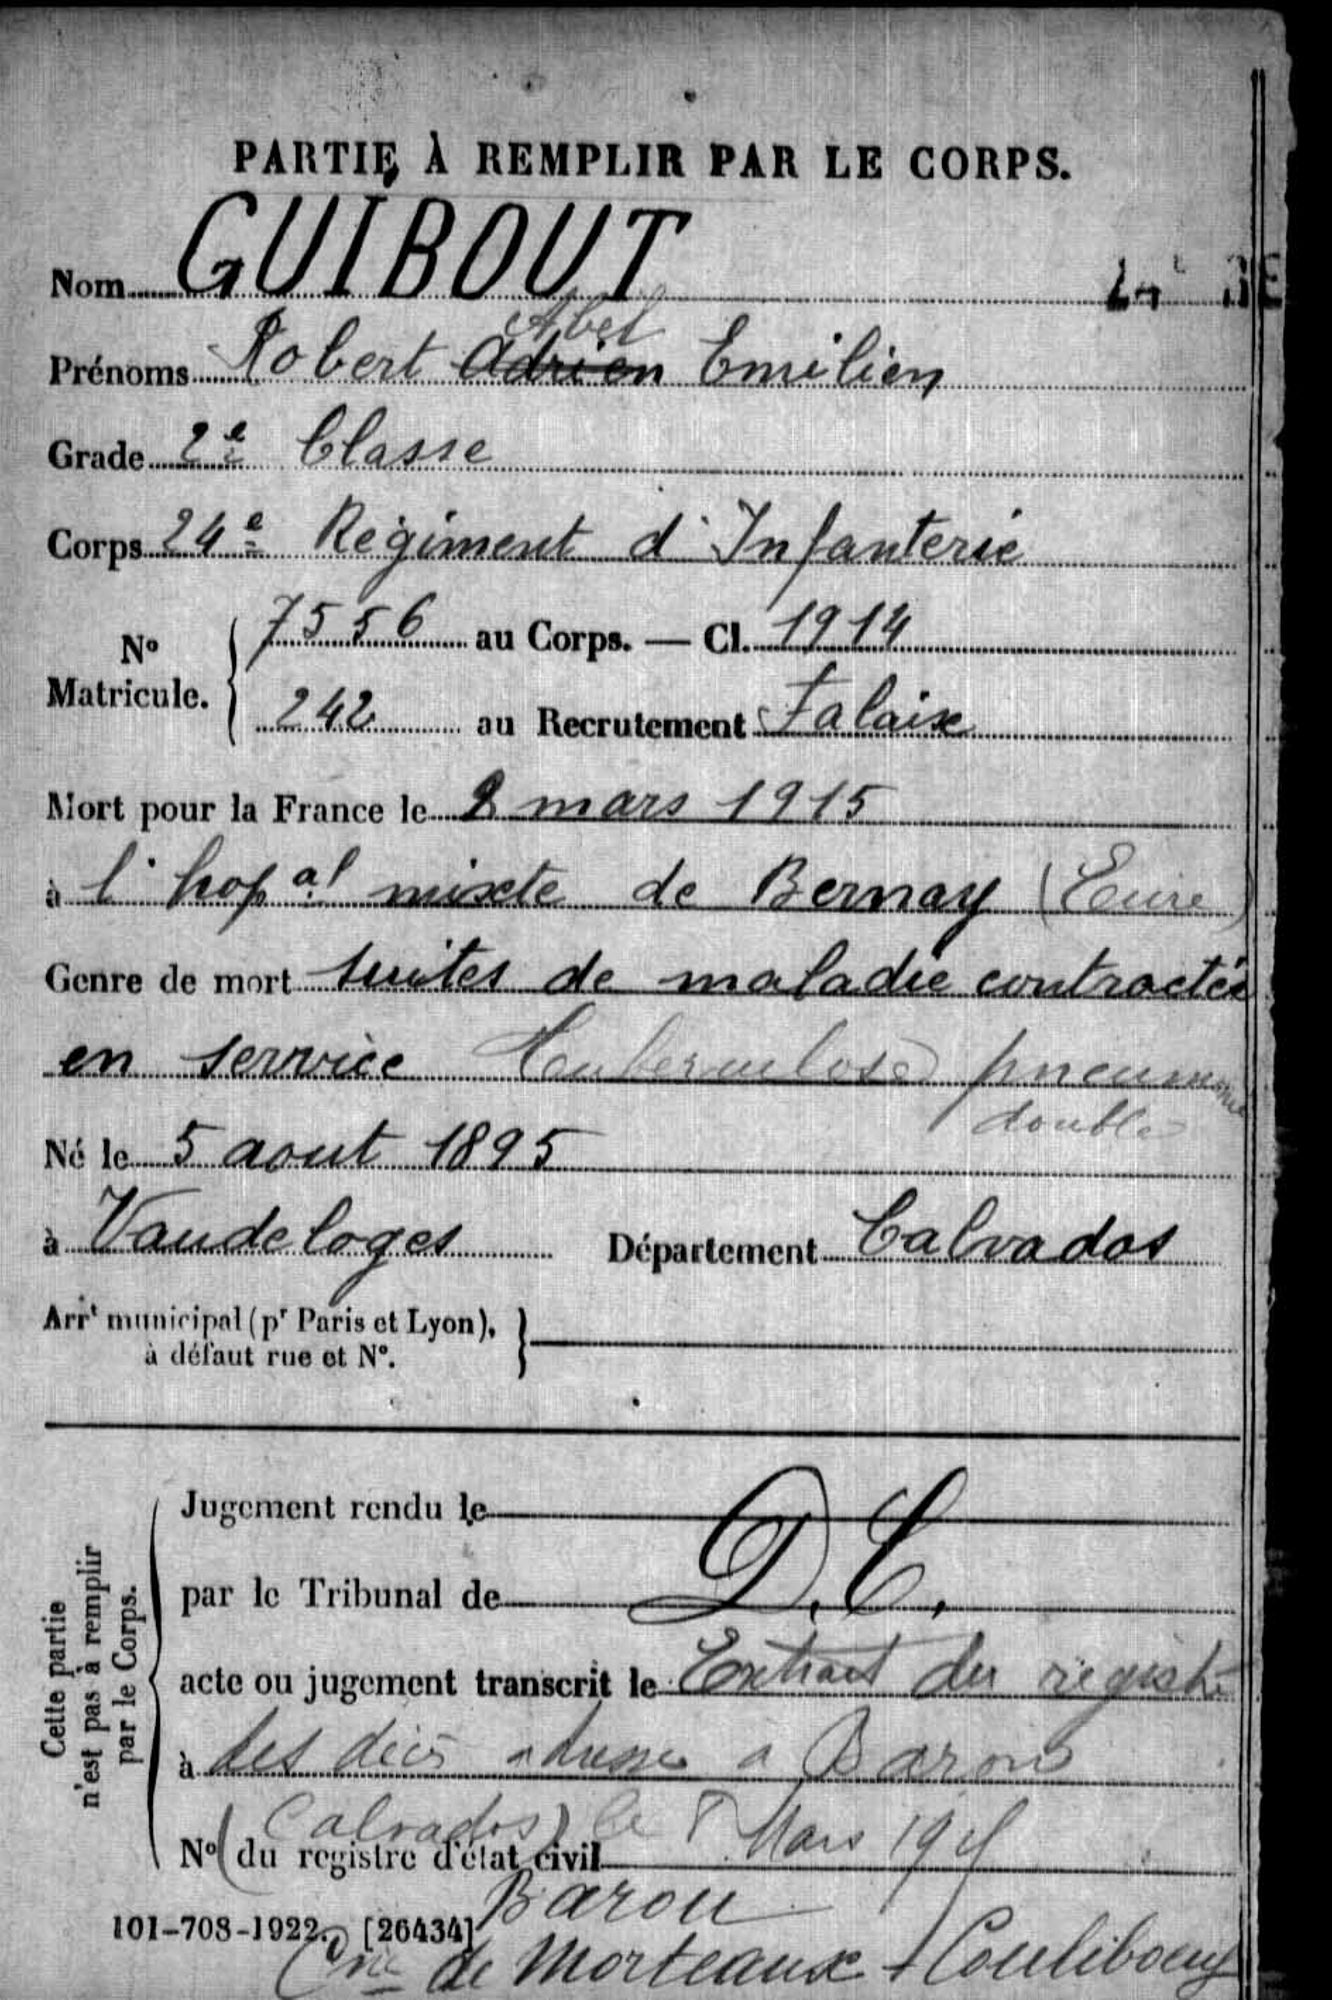 PARTIE À REMPLIR PAR LE CORPS.
Nom GUIBOUT
Abel
Prénoms Robert Adrien Emilien
Grade 2e Classe
Corps 24e Régiment d'Infanterie
No Matricule. 7556 au Corps. — Cl. 1914
242 au Recrutement Falaise
Mort pour la France le 2 mars 1915
à l'hopal mixte de Bernay (Eure)
Genre de mort suites de maladie contractée
en service Tuberculose pneumonie
double
Né le 5 aout 1895
à Vaudeloges Département Calvados
Arrt municipal (pr Paris et Lyon),
à défaut rue et No.
Cette partie
n'est pas à remplir
par le Corps.
Jugement rendu le
par le Tribunal de D.C.
acte ou jugement transcrit le Extrait du registre
à des décès a Barou
(Calvados) le 8 Mars
No du registre d'état civil
Barou
101-708-1922. [26434]
Cne de Morteaux Coulibœuf